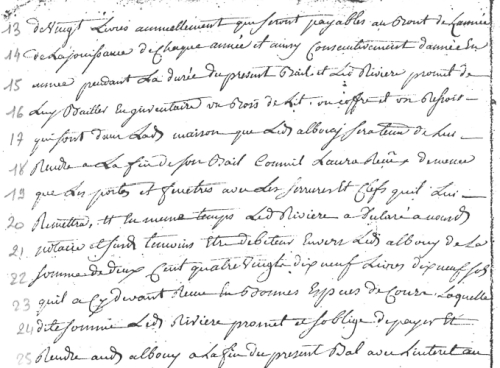 13 de Vingt Livres annuellement qui seront payables au bout de L'année
14 de La jouissance de Chaque année et ainsy Consecutivement d'année En
15 année pendant La durée du present Bail, et Led Riviere promet de
16 Luy Bailler En inventaire un Bois de Lit, un coffre et un
17 qui sont dans Lade maison que Led albouy sera tenu de Luy
18 Rendre a La fin de son Bail Comme il Laura de meme
19 que Les portes et fenetres avec Les serrures Et Clefs quil Lui
20 Remettra, Et En meme temps Led Riviere a declaré a nousd
21 notaire et susd temoins Etre debiteur Envers Led albouy de La
22 somme de deux Cent quatre Vingts dix neuf Livres dix neuf sols
23 quil a Cy devant Reçue En bonnes Especes de Cours Laquelle
24 dite somme Led Riviere promet et soblige de payer Et
25 Rendre aud albouy a La fin du present Bal avec L'interet au